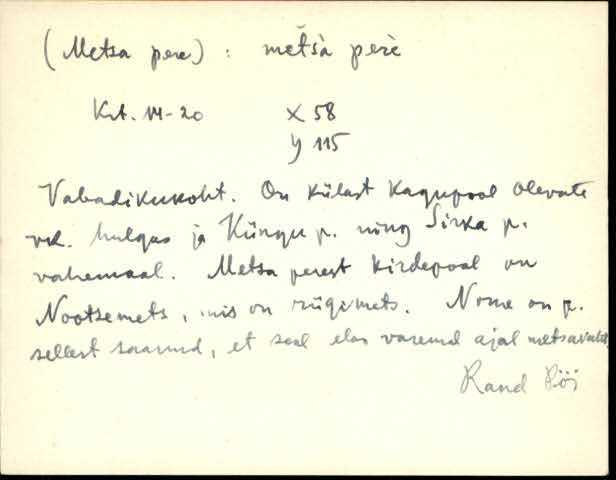 (Metsa pere) : metšà perè
Krt. VI-20 X 58
y 115
Vabadikukoht. On külast kagupool olevate
vk. hulgas ja Küngu p. ning Sirka p.
vahemaal. Metsa perest kirdepool on
Nootsemets, mis on riigimets. Nome on p.
sellest saanud, et seal elas varemal ajal metsavaht.
Rand